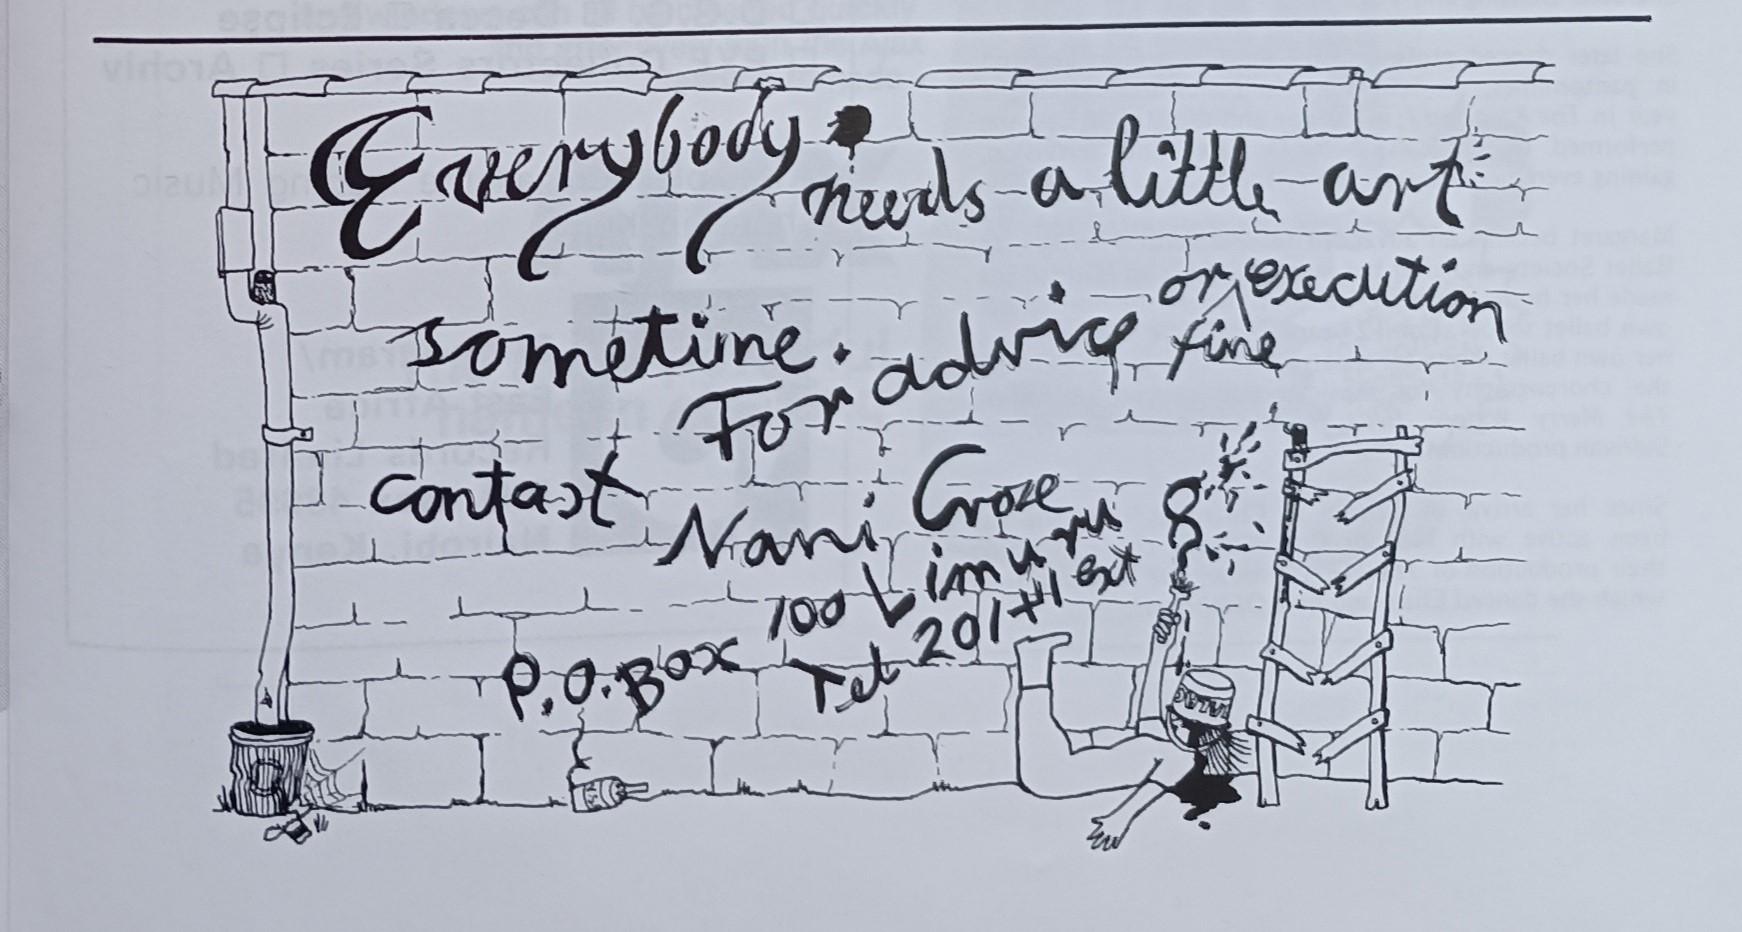 Everybody needs a little art
sometime. For advice or fine execution
contact Nani Croze
P.O. Box 100 Limuru
Tel 20/411 ext 8